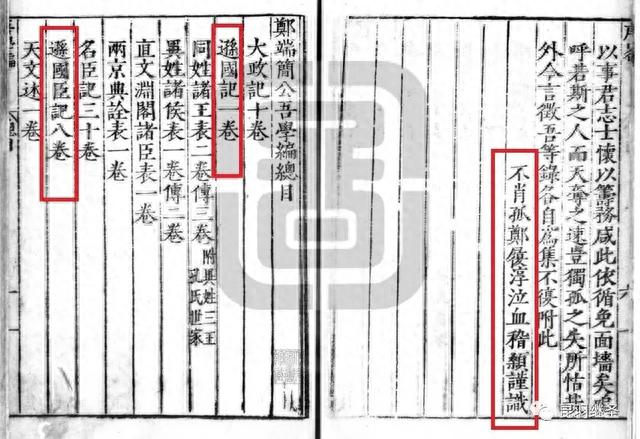 以事君志士懷以籌務咸此依循免面墻矣嗚
呼若斯之人而天奪之速豈獨孤之失所怙哉
外今言徵吾等錄各自為集不復附此
不肖孤鄭履淳泣血稽顙謹識
鄭端簡公吾學編總目
大政記十卷
遜國記一卷
同姓諸王表二卷傳三卷
附異姓三王
孔氏世家
異姓諸侯表一卷傳二卷
直文淵閣諸臣表一卷
兩京典銓表一卷
名臣記三十卷
遜國臣記八卷
天文述一卷